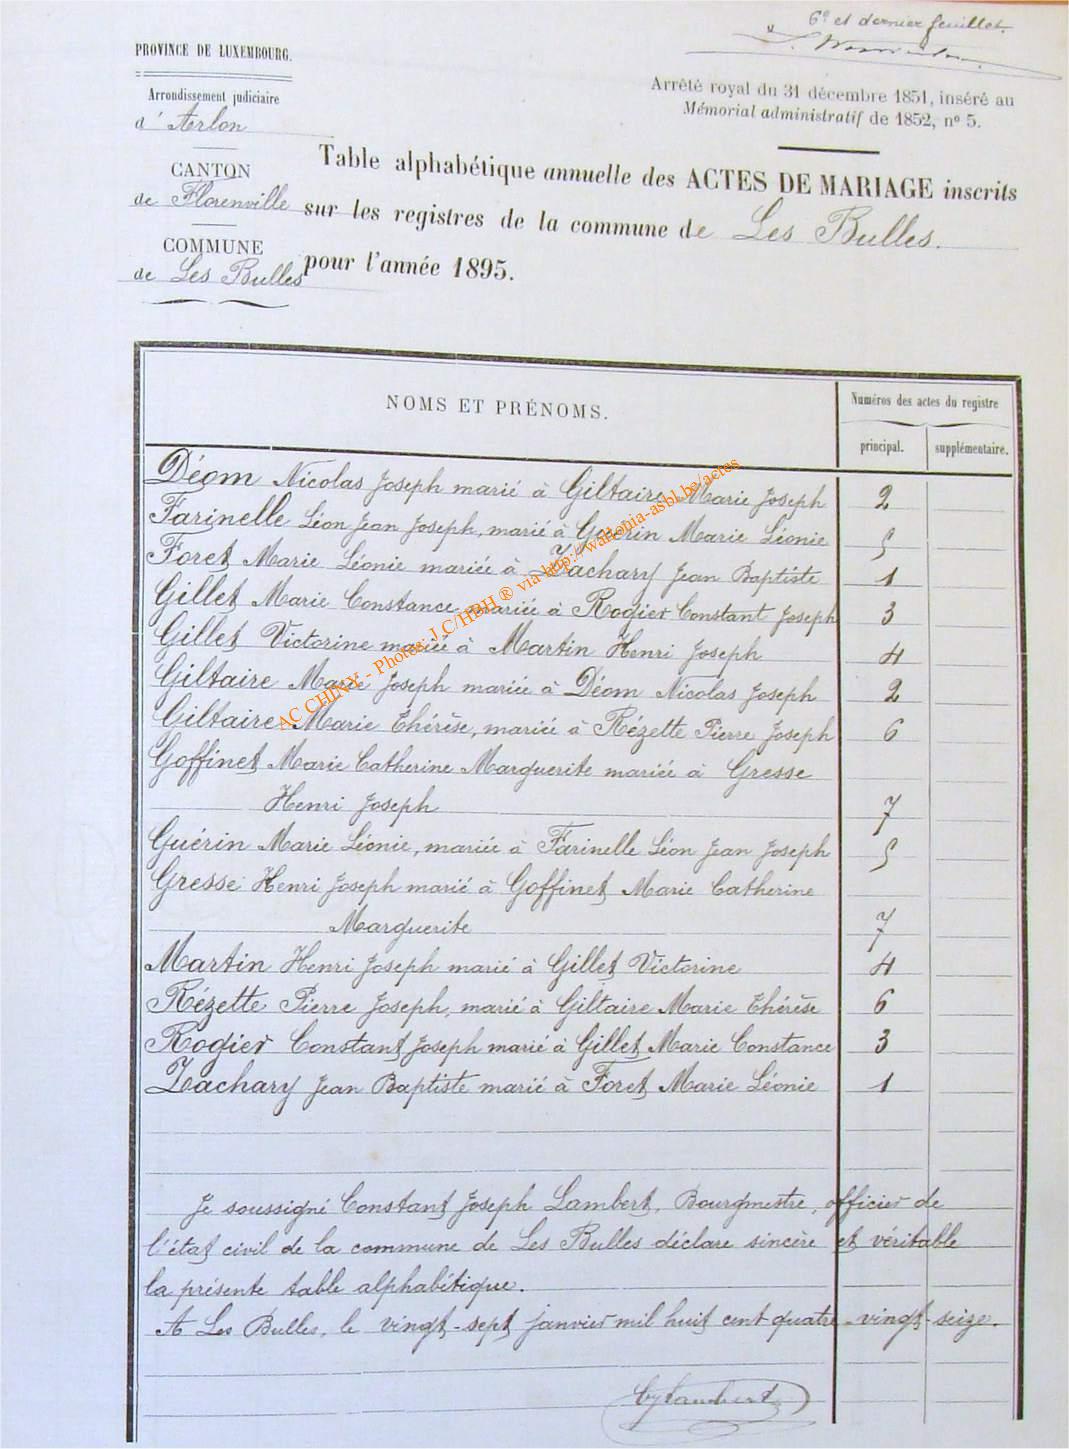 6e et dernier feuillet.
PROVINCE DE LUXEMBOURG.
Arrondissement judiciaire
d' Arlon
CANTON
de Florenville
COMMUNE
de Les Bulles
Arrêté royal du 31 décembre 1851, inséré au
Mémorial administratif de 1852, nº 5.
Table alphabétique annuelle des ACTES DE MARIAGE inscrits
sur les registres de la commune de Les Bulles.
pour l'année 1895.
NOMS ET PRÉNOMS.
Numéros des actes du registre
principal. supplémentaire.
Déom Nicolas Joseph marié à Giltaire Marie Joseph 2
Farinelle Léon Jean Joseph, marié à Guérin Marie Léonie 5
Foret Marie Léonie mariée à Zachary Jean Baptiste 1
Gillet Marie Constance mariée à Rogier Constant Joseph 3
Gillet Victorine mariée à Martin Henri Joseph 4
Giltaire Marie Joseph mariée à Déom Nicolas Joseph 2
Giltaire Marie Thérèse, mariée à Rézette Pierre Joseph 6
Goffinet Marie Catherine Marguerite mariée à Gresse
Henri Joseph 7
Guérin Marie Léonie, mariée à Farinelle Léon Jean Joseph 5
Gresse Henri Joseph marié à Goffinet Marie Catherine
Marguerite 7
Martin Henri Joseph marié à Gillet Victorine 4
Rézette Pierre Joseph, marié à Giltaire Marie Thérèse 6
Rogier Constant Joseph marié à Gillet Marie Constance 3
Zachary Jean Baptiste marié à Foret Marie Léonie 1
Je soussigné Constant Joseph Lambert, Bourgmestre, officier de
l'état civil de la commune de Les Bulles déclare sincère et véritable
la présente table alphabétique.
A Les Bulles, le vingt-sept janvier mil huit cent quatre-vingt-seize.
CJ Lambert
AC CHINY - Photos: J.C/HBH ® via http://wallonia-asbl.be/actes